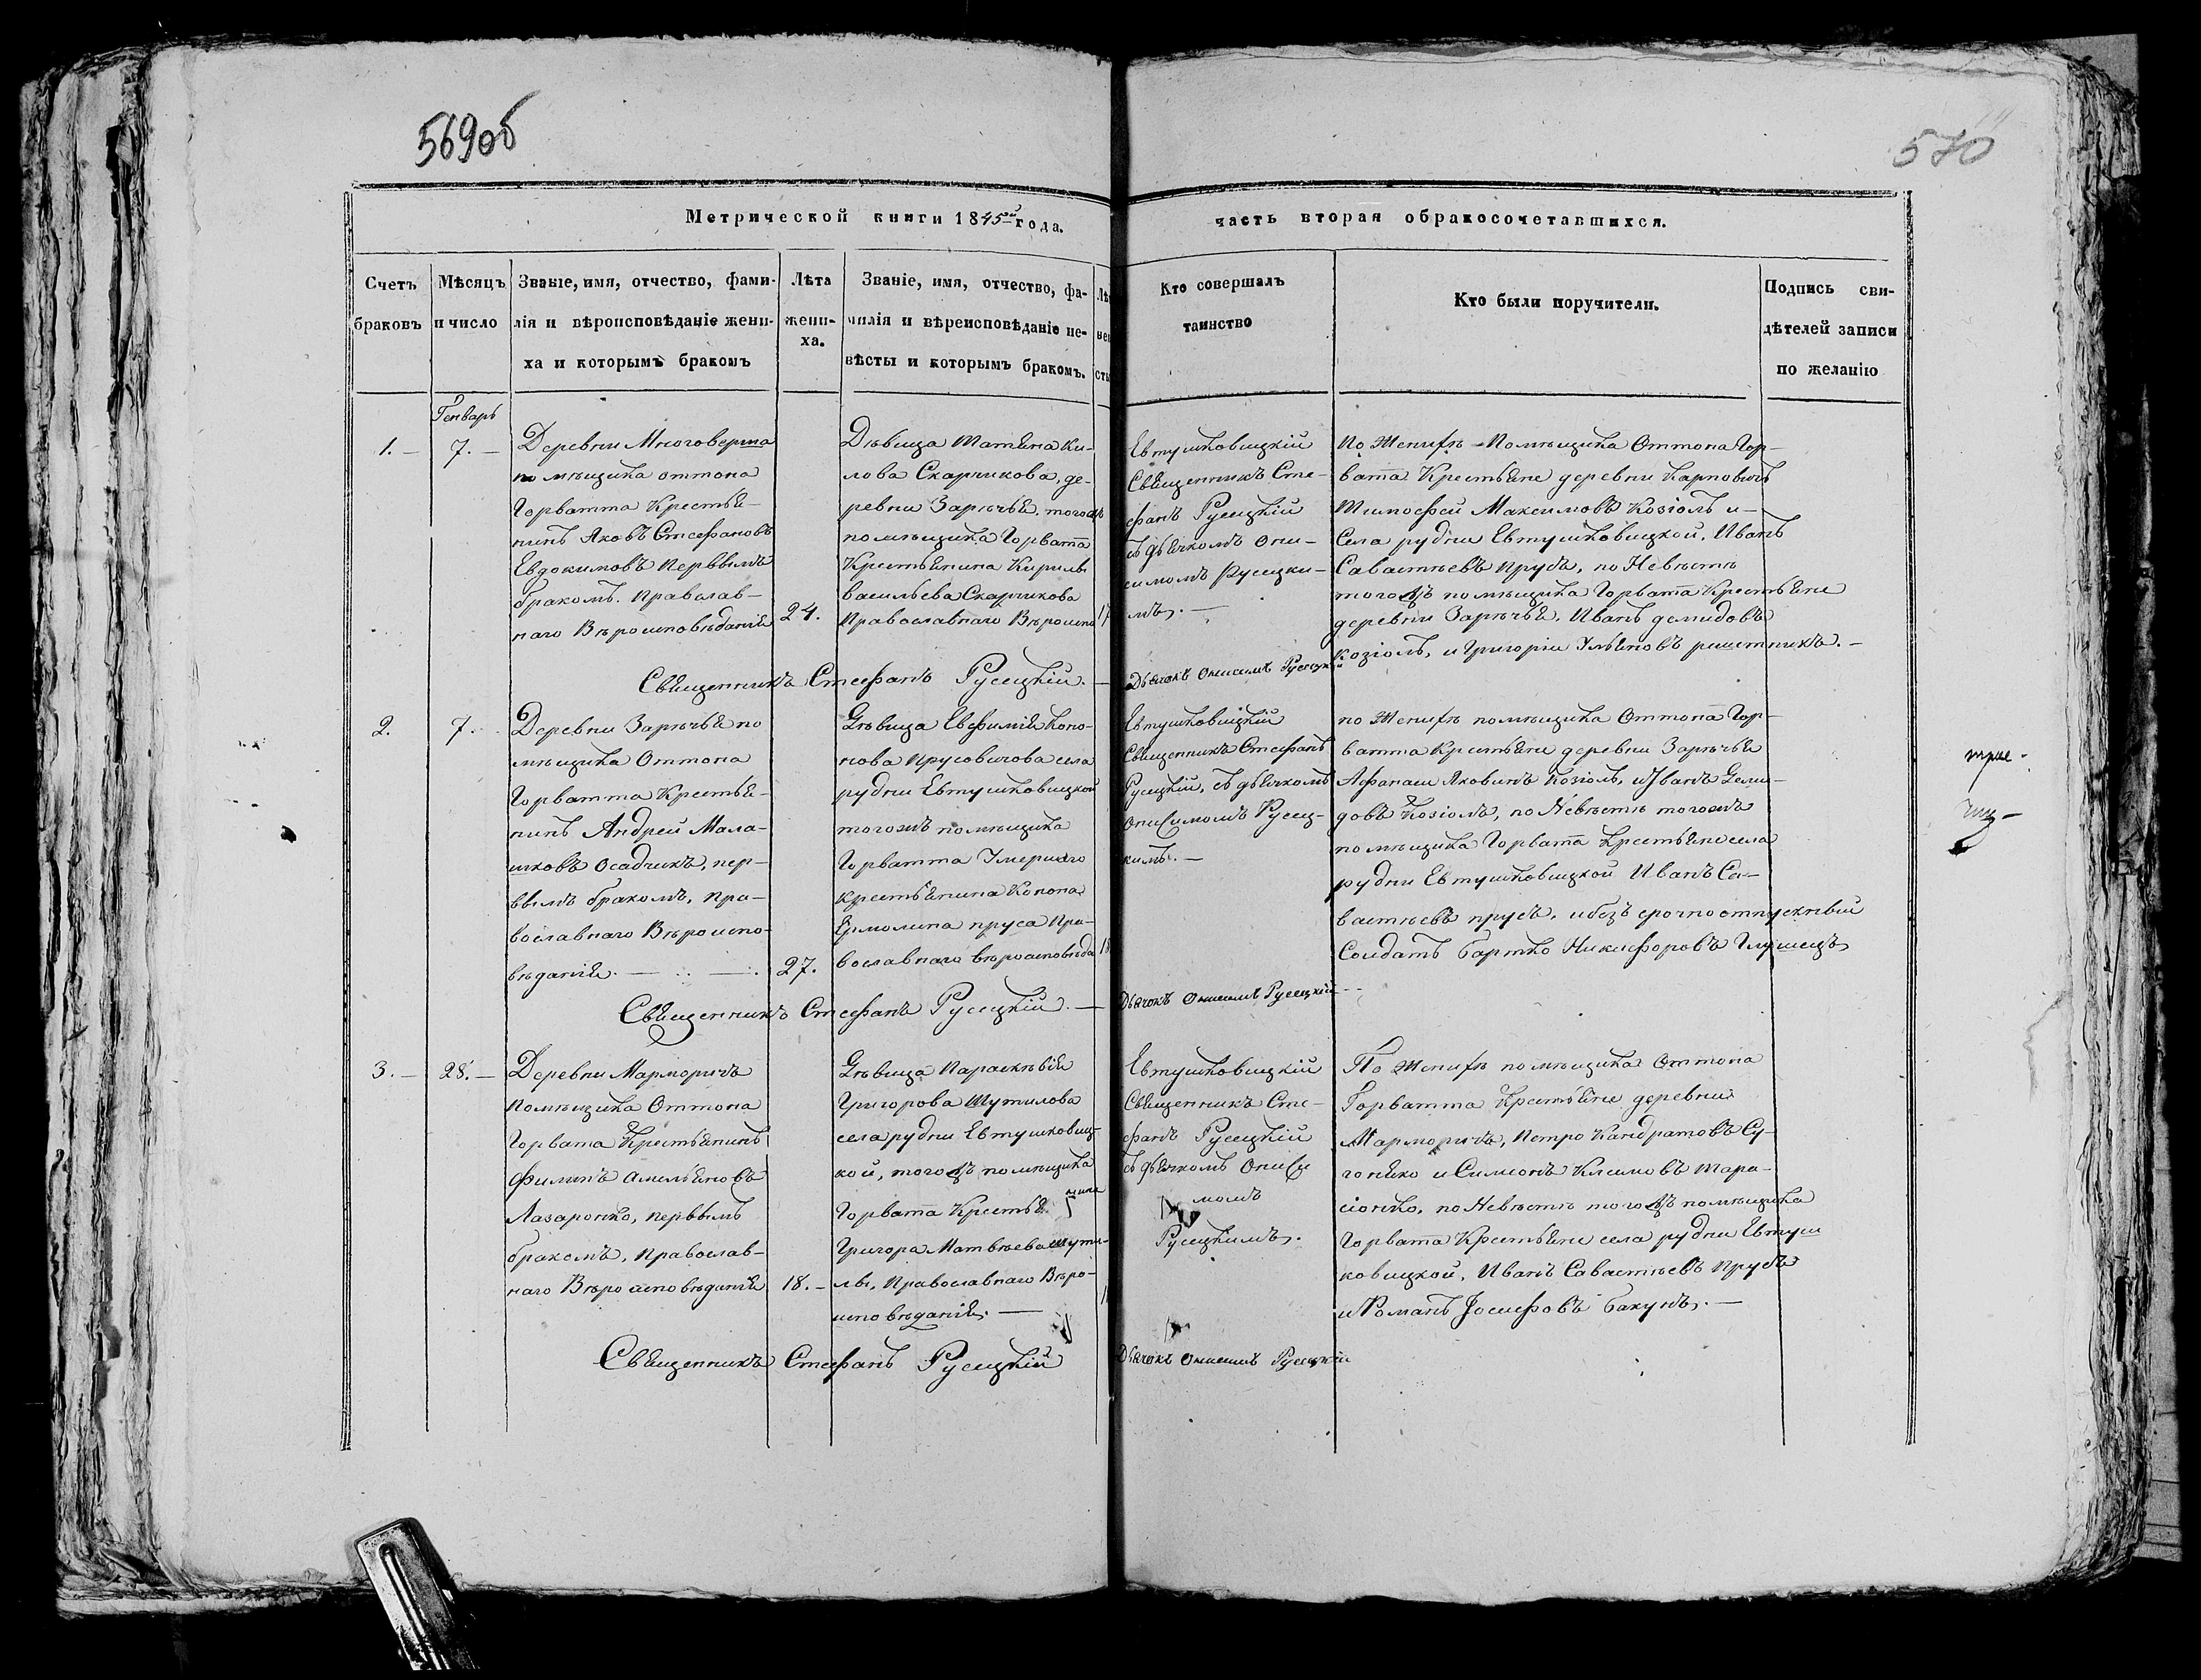 569об
570
Метрической книги 1845го года.
часть вторая обракосочетавшихся.
Счетъ браковъ
Мѣсяцъ и число
Званіе, имя, отчество, фами-
лія и вѣроисповѣданіе жени-
ха и которымъ бракомъ
Лѣта
жени-
ха.
Званіе, имя, отчество, фа-
милія и вѣроисповѣданіе не-
вѣсты и которымъ бракомъ.
Кто совершалъ
таинство
Кто были поручители.
Подпись сви-
дѣтелей записи
по желанію
Генварь
1.
7.
Деревни Многоверша
помѣщика Оттона
Горватта Крестья-
нинъ Яковъ Стефановъ
Евдокимовъ первымъ
бракомъ. Православ-
наго Вѣроисповѣданія
24.
Дѣвица Татьяна Ки-
лова Скарчикова, де-
ревни Зарѣчья, тогожъ
помѣщика Горватта
Крестьянина Кирилы
Васильева Скарчикова
Православнаго Вѣроиспо
17
Евтушковицкій
Священникъ Сте-
фанъ Русецкій
съ дьячкомъ Они-
симомъ Русецки-
мъ. —
По Женихѣ – Помѣщика Оттона Гор-
ватта Крестьяне деревни Карповичь
Тимофей Максимовъ Козіолъ и –
Села рудни Евтушковицкой, Иванъ
Савастѣевъ прусъ, по Невѣстѣ
тогожъ помѣщика Горватта Крестьяне
деревни Зарѣчья, Иванъ демидовъ
козіолъ, и Григорій Ульяновъ решетникъ. –
Священникъ Стефанъ Русецкій. —
Дьячокъ Онисимъ Русецкій
2.
7.
Деревни Зарѣчья по
мѣщика Оттона
Горватта Крестья-
нинъ Андрей Мала-
шковъ Осадчикъ, пер-
вымъ бракомъ, Пра-
вославнаго Вѣроиспо-
вѣданія.
27.
Дѣвица Евфимія Коно-
нова Прусовичова села
рудни Евтушковицкой
тогожъ помѣщика
Горватта Умершого
крестьянина Конона
Ермолина пруса Пра-
вославнаго вѣроисповѣда
18
Евтушковицкій
Священникъ Стефанъ
Русецкій, съ дьячкомъ
Онисимомъ Русец-
кимъ. —
по Женихѣ помѣщика Оттона Гор-
ватта Крестьяне деревни Зарѣчья
Афанаси Яковинъ Козіолъ, и Иванъ Деми-
довъ Козіолъ, по Невѣстѣ тогожъ
помѣщика Горватта Крестьяне села
рудни Евтушковицкой Иванъ Са-
вастѣевъ прусъ, и безъ срочно отпускный
Солдатъ Бартко Никифоровъ Глушецъ
Священникъ Стефанъ Русецкій. —
Дьячокъ Онисимъ Русецкій
3.
28.
Деревни Марморичъ
Помѣщика Оттона
Горвата Крестьянинъ
Филипъ Амельяновъ
Лазаронко, первымъ
бракомъ, Православ-
наго Вѣроисповѣданія
18.
Дѣвица Параскѣвія
Григорова Шутилова
села рудни Евтушковиц-
кой, тогожъ помѣщика
Горвата Крестья-
нина
Григора Матвѣева Шути-
лы, Православнаго Вѣро-
исповѣданія. —
Евтушковицкій
Священникъ Сте-
фанъ Русецкій
съ дьячкомъ Ониси
момъ
Русецкимъ.
По Женихѣ помѣщика Оттона
Горватта Крестьяне деревни
Марморичъ, Петро Кандратовъ Су-
гоняко и Симеонъ Климовъ Тара-
сіонко, по Невѣстѣ тогожъ помѣщика
Горвата Крестьяне села рудни Евтуш
ковицкой, Иванъ Савастѣевъ Прусъ
и Романъ Іосифовъ Бакунъ. —
Священникъ Стефанъ Русецкій
Дьячокъ Онисимъ Русецкій